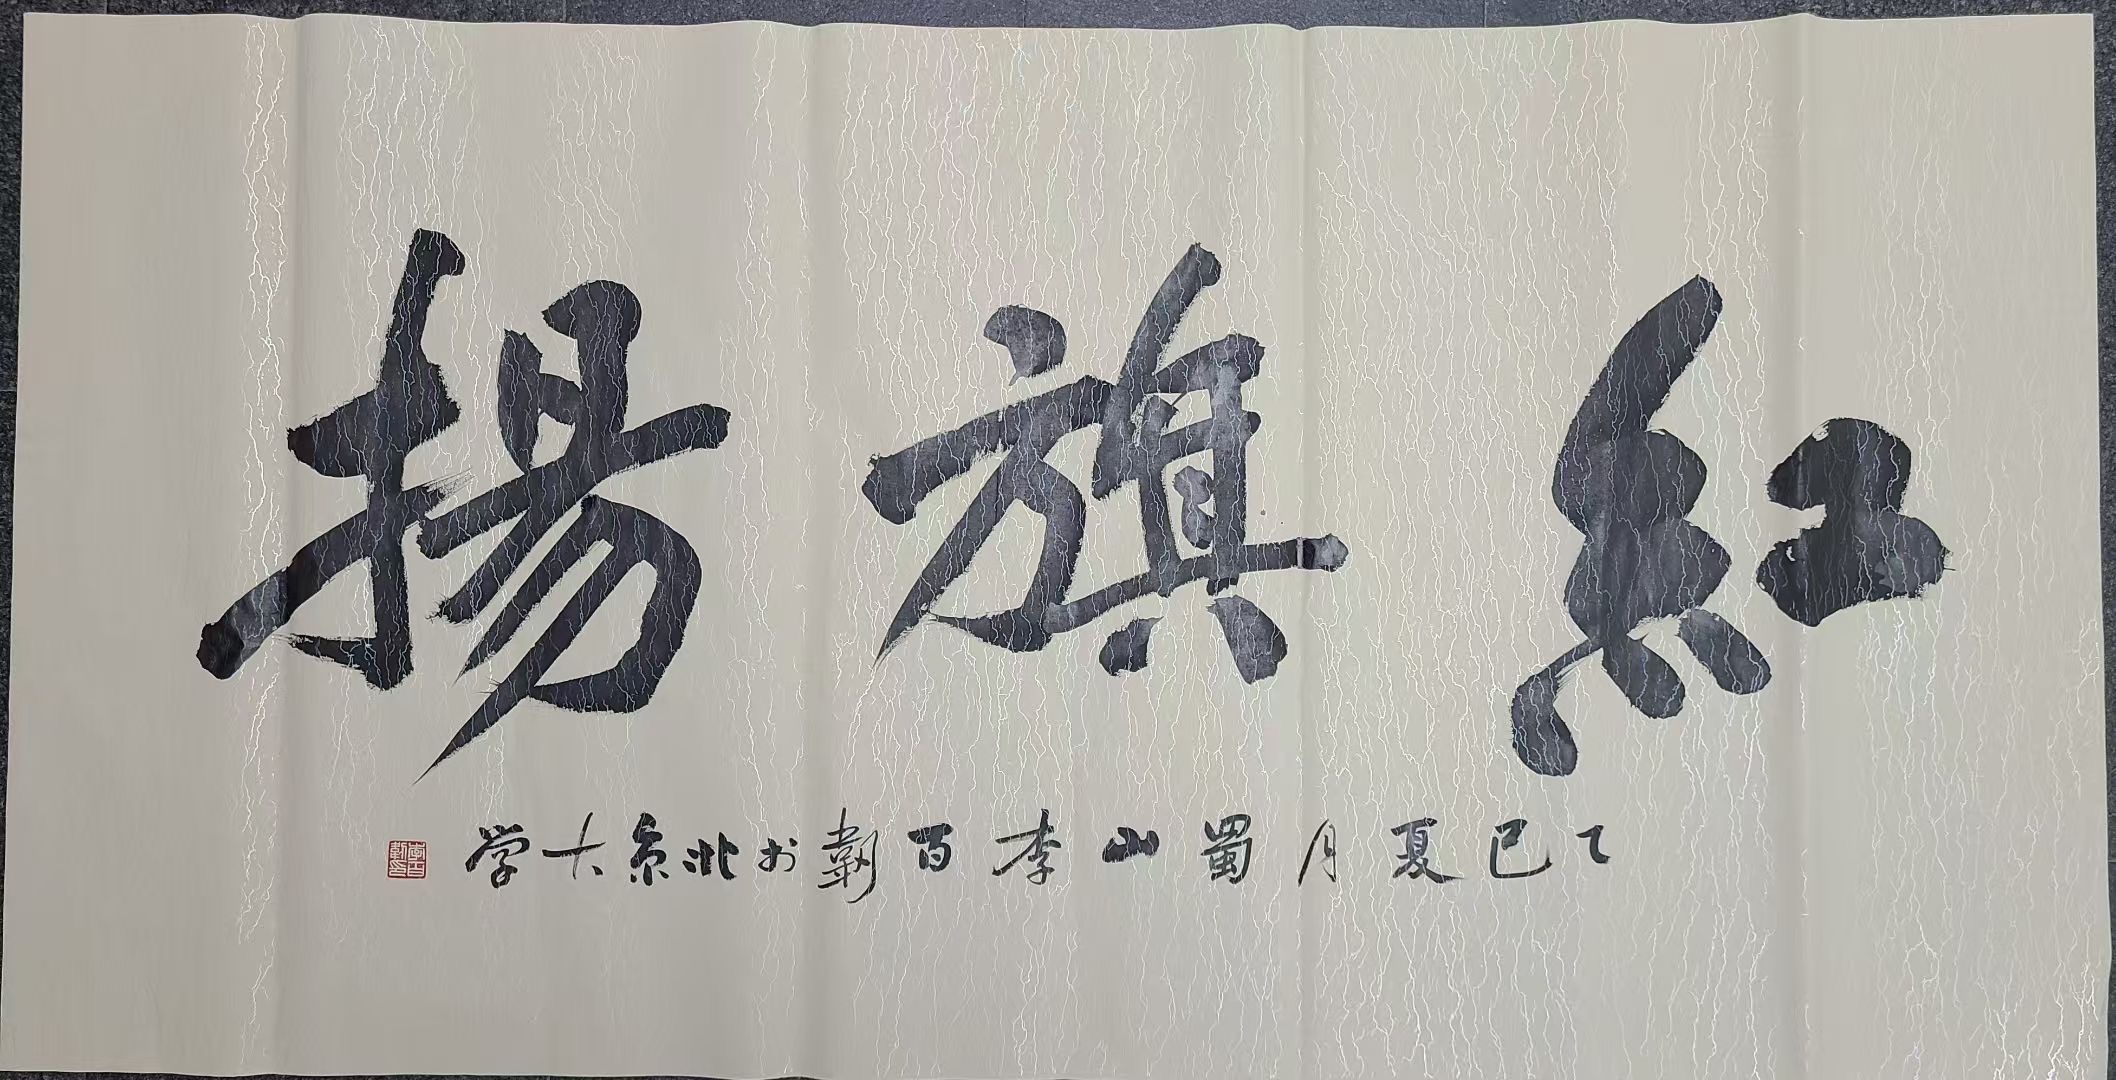 紅旗揚
乙巳夏月蜀山李百於北京大学